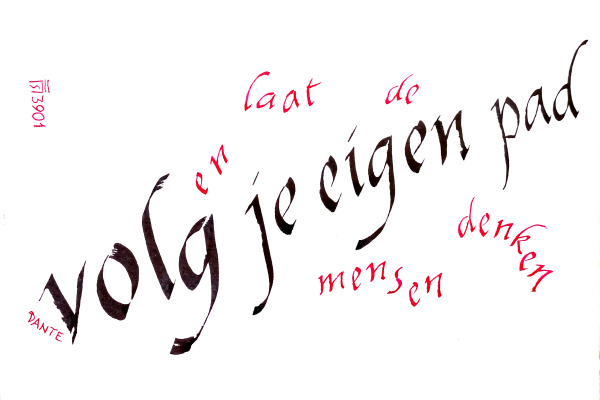 volg je eigen pad
en laat de
mensen denken
DANTE
3901